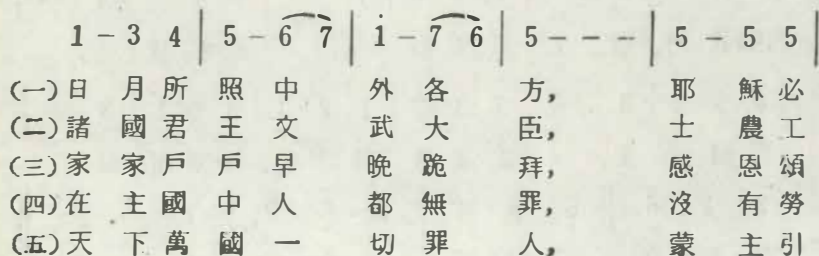 1 - 3 4 | 5 - 6 7 | i - 7 6 | 5 - - - | 5 - 5 5 |
(一)日 月 所 照 中 外 各 方, 耶 穌 必
(二)諸 國 君 王 文 武 大 臣, 士 農 工
(三)家 家 戶 戶 早 晚 跪 拜, 感 恩 頌
(四)在 主 國 中 人 都 無 罪, 沒 有 勞
(五)天 下 萬 國 一 切 罪 人, 蒙 主 引